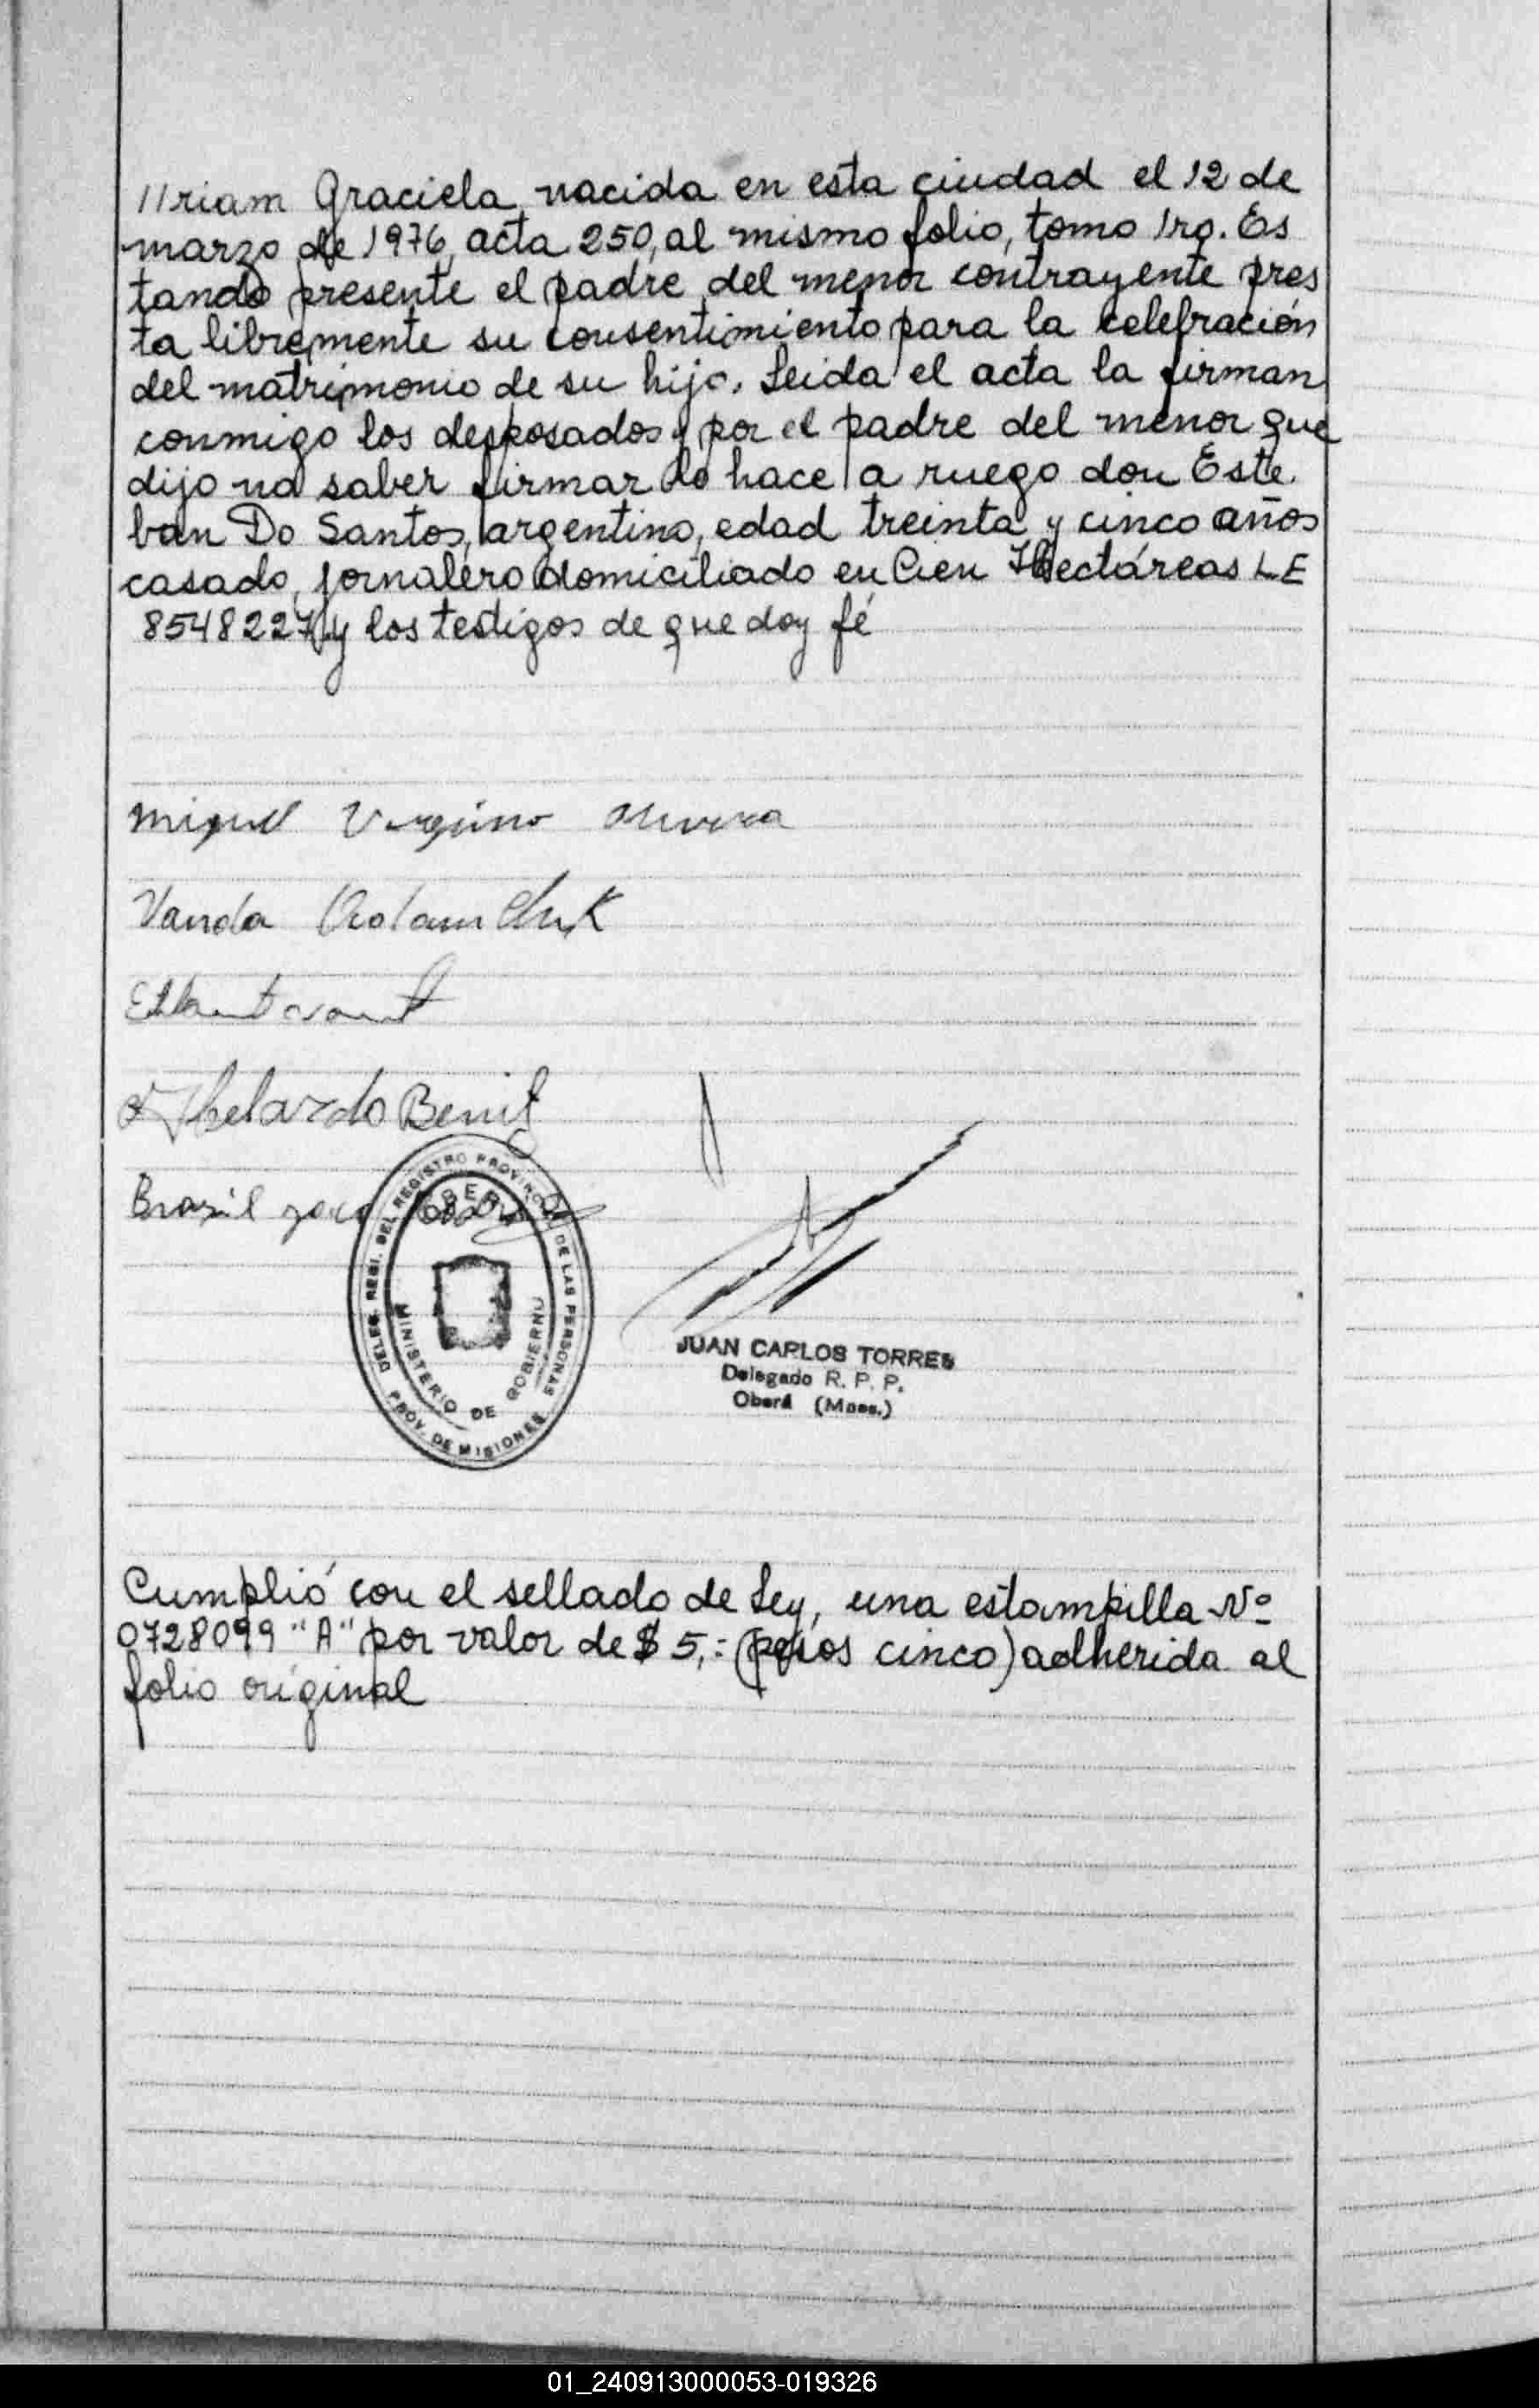 //riam Graciela nacida en esta ciudad el 12 de
marzo de 1976, acta 250, al mismo folio, tomo 1ro. Es
tando presente el padre del menor contrayente pres
ta libremente su consentimiento para la celebración
del matrimonio de su hijo. Leida el acta la firman
conmigo los desposados y por el padre del menor que
dijo no saber firmar lo hace a ruego don Este
ban Do Santos, argentino, edad treinta y cinco años
casado, jornalero domiciliado en Cien Hectáreas LE
8548227 y los testigos de que doy fé
Miguel Virginio Olivera
Vanda
Abelardo Benit
Brasil
DELEG. REGI. DEL REGISTRO PROVINCIAL DE LAS PERSONAS
MINISTERIO DE GOBIERNO
PROV. DE MISIONES
JUAN CARLOS TORRES
Delegado R. P. P.
Oberá (Mnes.)
Cumplió con el sellado de Ley, una estampilla Nº
0728099 "A" por valor de $ 5,= (pesos cinco) adherida al
folio original
01_240913000053-019326